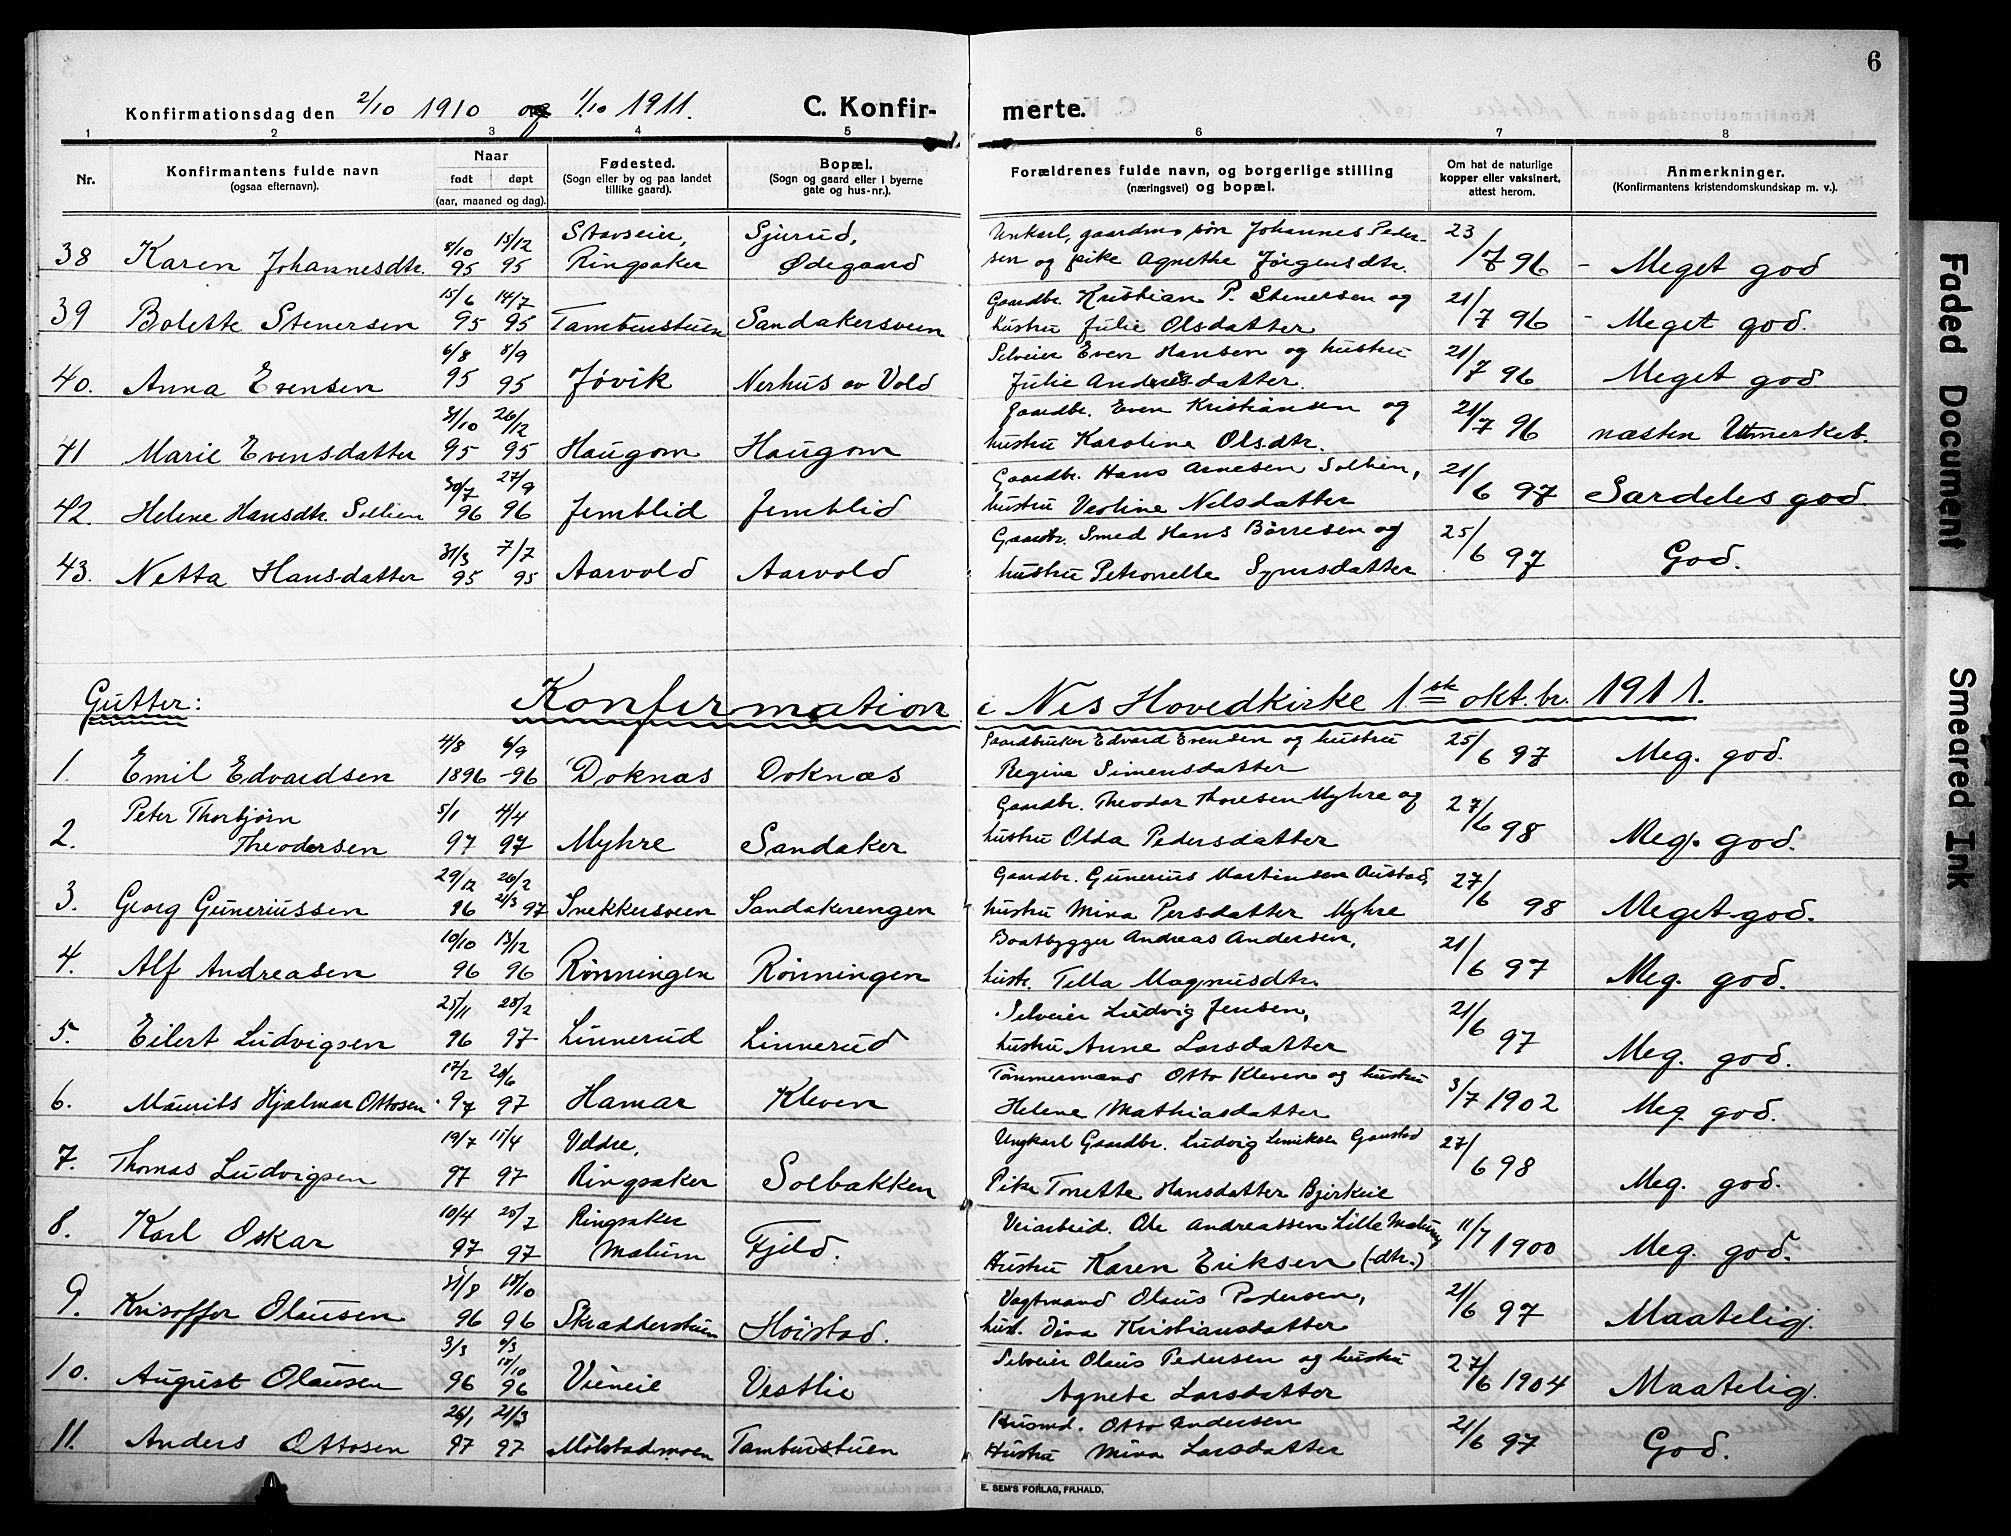 6
Konfirmationsdag den 2/10 1910 og 1/10 1911. C. Konfir- merte.
1 2 3 4 5 6 7 8
Nr. Konfirmantens fulde navn (ogsaa efternavn). Naar født døpt (aar, maaned og dag). Fødested. (Sogn eller by og paa landet tillike gaard). Bopæl. (Sogn og gaard eller i byerne gate og hus-nr.). Forældrenes fulde navn, og borgerlige stilling (næringsvei) og bopæl. Om hat de naturlige kopper eller vaksinert, attest herom. Anmerkninger. (Konfirmantens kristendomskundskap m. v.).
8/10 15/12 Stavseier, Sjurud, Unkarl, gaardms søn Johannes Peder- 23
38 Karen Johannesdtr. 95 95 Ringsaker Ødegaard sen og pike Agnethe Jørgensdtr. /7 96 - Meget god
15/6 14/7 Gaardbr. Kristian P. Stenersen og 21
39 Bolette Stenersen 95 95 Tamburstuen Sandakersveen hustru Julie Olsdatter /7 96 - Meget god.
6/8 8/9 Selveier Even Hansen og hustru 21
40. Anna Evensen 95 95 Jøvik Nerhus av Vold Julie Andersdatter. /7 96 Meget god
31/10 26/12 Gaardbr. Even Kristiansen og 21
41 Marie Evensdatter 95 95 Haugom Haugom hustru Karoline Olsdtr. /7 96 næsten Utmerket.
30/7 27/9 Gaardbr. Hans Arnesen Sollien, 21
42. Helene Hansdtr. Sollien 96 96 Jemblid Jemblid hustru Verline Nilsdatter /6 97 Særdeles god.
31/3 7/7 Gaardbr. Smed Hans Børresen og 25
43. Netta Hansdatter 95 95 Aarvold Aarvold hustru Petronelle Syversdatter /6 97 God.
Gutter: Konfirmation i Nes Hovedkirke 1ste okt.br. 1911.
4/8 6/9 Gaardbruker Edvard Evensen og hustru 25
1. Emil Edvardsen 1896 -96 Doknæs Doknæs Regine Simensdatter /6 97 Meg. god.
Peter Thorbjørn 5/1 4/4 Gaardbr. Theodor Thoresen Myhre og 27
2. Theodorsen 97 97 Myhre Sandaker hustru Olda Pedersdatter /6 98 Meg. god.
29/12 26/2 Gaardbr. Gunerius Martinsen Austad, 27
3. Georg Guneriussen 96 21/3 97 Snekkersveen Sandakerengen hustru Mina Persdatter Myhre /6 98 Meget god.
10/10 13/12 Baatbygger Andreas Andersen, 21
4. Alf Andreasen 96 96 Rønningen Rønningen hustr. Tilla Magnusdtr. /6 97 Meg. god.
25/11 28/2 Selveier Ludvig Jensen, 21
5. Eilert Ludvigsen 96 97 Linnerud Linnerud hustru Anne Larsdatter /6 97 Meg. god.
17/2 20/6 Tømmermand Otto Kleven og hustru
6. Maurits Hjalmar Ottosen 97 97 Hamar Kleven Helene Mathiasdatter 3/7 1902 Meg. god.
19/7 15/4 Veldre, Ungkarl Gaardbr. Ludvig Gaustad 27
7. Thomas Ludvigsen 97 97 Ringsaker Solbakken Pike Tonette Hansdatter Bjerkeie /6 98 Meg. god.
10/4 25/7 Ringsaker Veiarbeid. Ole Andreassen Lille Malum,
8. Karl Oskar 97 97 Malum Fjeld. Hustru Karen Eriksen (-dtr.) 11/7 1900 Meg. god.
31/8 18/10 Vagtmand Olaus Pedersen, 21
9. Krisoffer Olausen 96 96 Skrædderstuen Høistad. hust. Dina Kristiansdatter /6 97 Maatelig.
3/3 18/10 Selveier Olaus Pedersen og hustru 27
10. August Olausen 96 96 Vieneie Vestlie Agnete Larsdatter /6 1904 Maatelig.
26/1 21/3 Husmd. Otto Andersen 21
11. Anders Ottosen 97 97 Mølstadmoen Tamburstuen Hustru Mina Larsdatter /6 97 God.
E. SEM'S FORLAG, FR.HALD.
Faded Document
Smeared Ink